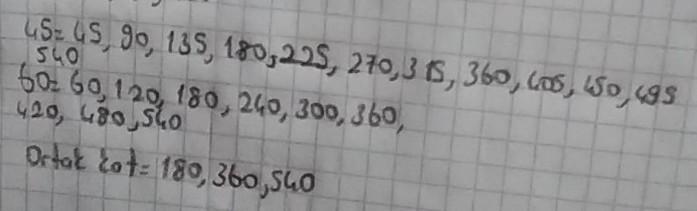 45= 45, 90, 135, 180, 225, 270, 315, 360, 405, 450, 495
540
60= 60, 120, 180, 240, 300, 360,
420, 480, 540
Ortak kat= 180, 360, 540